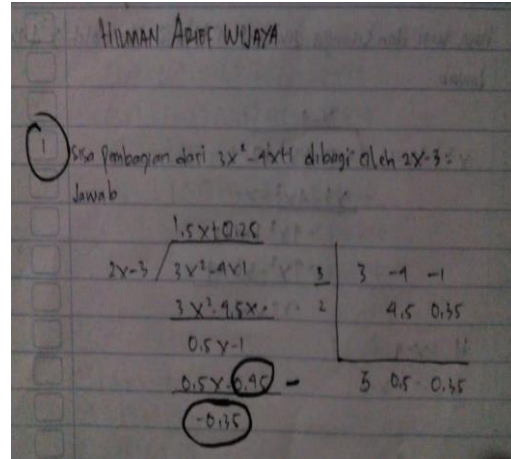 HILMAN ARIEF WIJAYA
1 Sisa Pembagian dari 3x²-4x+1 dibagi oleh 2x-3 =
Jawab
1.5x+0.25
2x-3 / 3x²-4x1
3x²-4.5x
0.5x-1
0.5x-0.45 -
-0.35
3/2 | 3 -4 -1
4.5 0.35
3 0.5 0.35